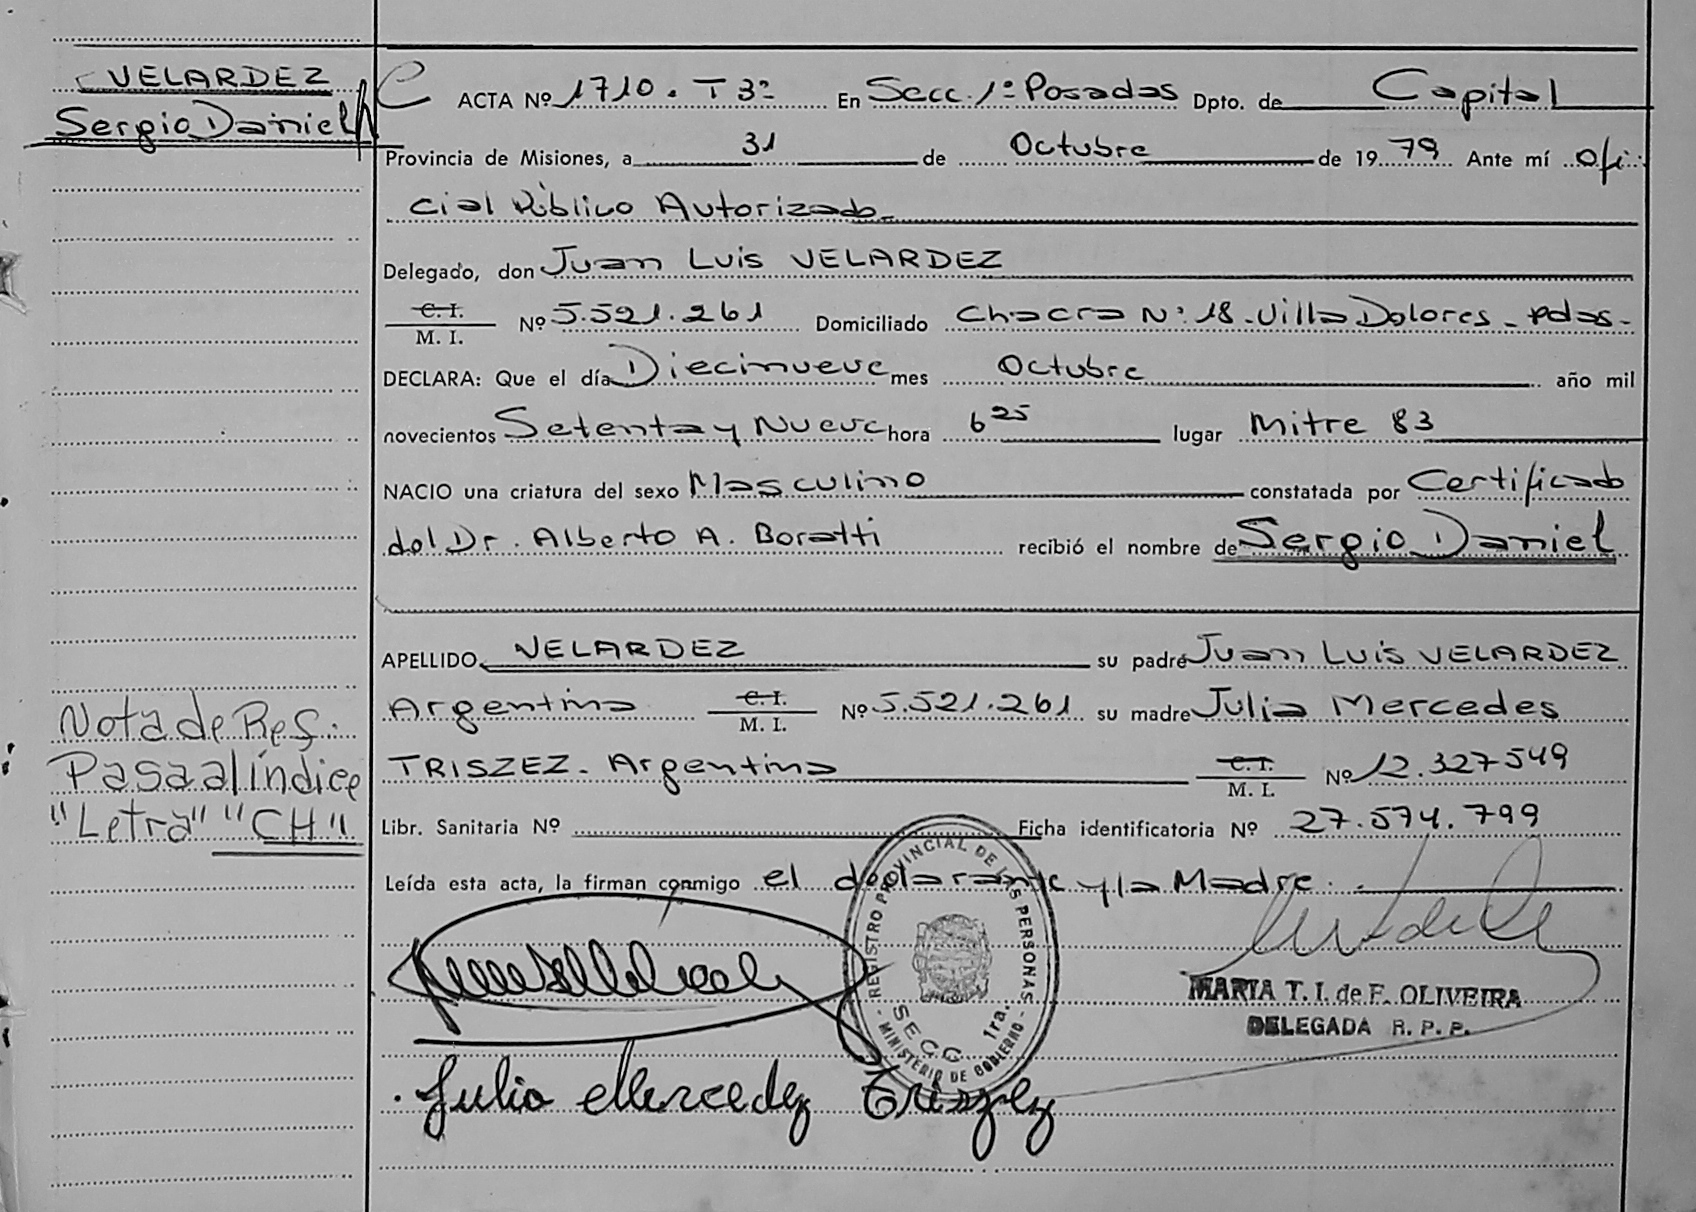 VELARDEZ
Sergio Daniel
ACTA Nº 1710. T 3º En Secc. 1º Posadas Dpto. de Capital
Provincia de Misiones, a 31 de Octubre de 1979 Ante mí Ofi-
cial Público Autorizado-
Delegado, don Juan Luis VELARDEZ
C. I.
M. I.
Nº 5.521.261 Domiciliado Chacra Nº 18-Villa Dolores-Pdas-
DECLARA: Que el día Diecinueve mes Octubre año mil
novecientos Setenta y Nueve hora 6 25 lugar Mitre 83
NACIO una criatura del sexo Masculino constatada por Certificado
del Dr. Alberto A. Boratti recibió el nombre de Sergio Daniel
APELLIDO VELARDEZ su padre Juan Luis VELARDEZ
Argentino C. I. M. I. Nº 5.521.261 su madre Julia Mercedes
TRISZEZ. Argentina C. I. M. I. Nº 12.327549
Libr. Sanitaria Nº Ficha identificatoria Nº 27.574.799
Leída esta acta, la firman conmigo el declarante y la Madre.
Nota de Ref:
Pasa al índice
"Letra" "CH"
REGISTRO PROVINCIAL DE LAS PERSONAS - MINISTERIO DE GOBIERNO -
SECC. 1ra.
MARIA T. I. de F. OLIVEIRA
DELEGADA R. P. P.
Julia Mercedez Triszez